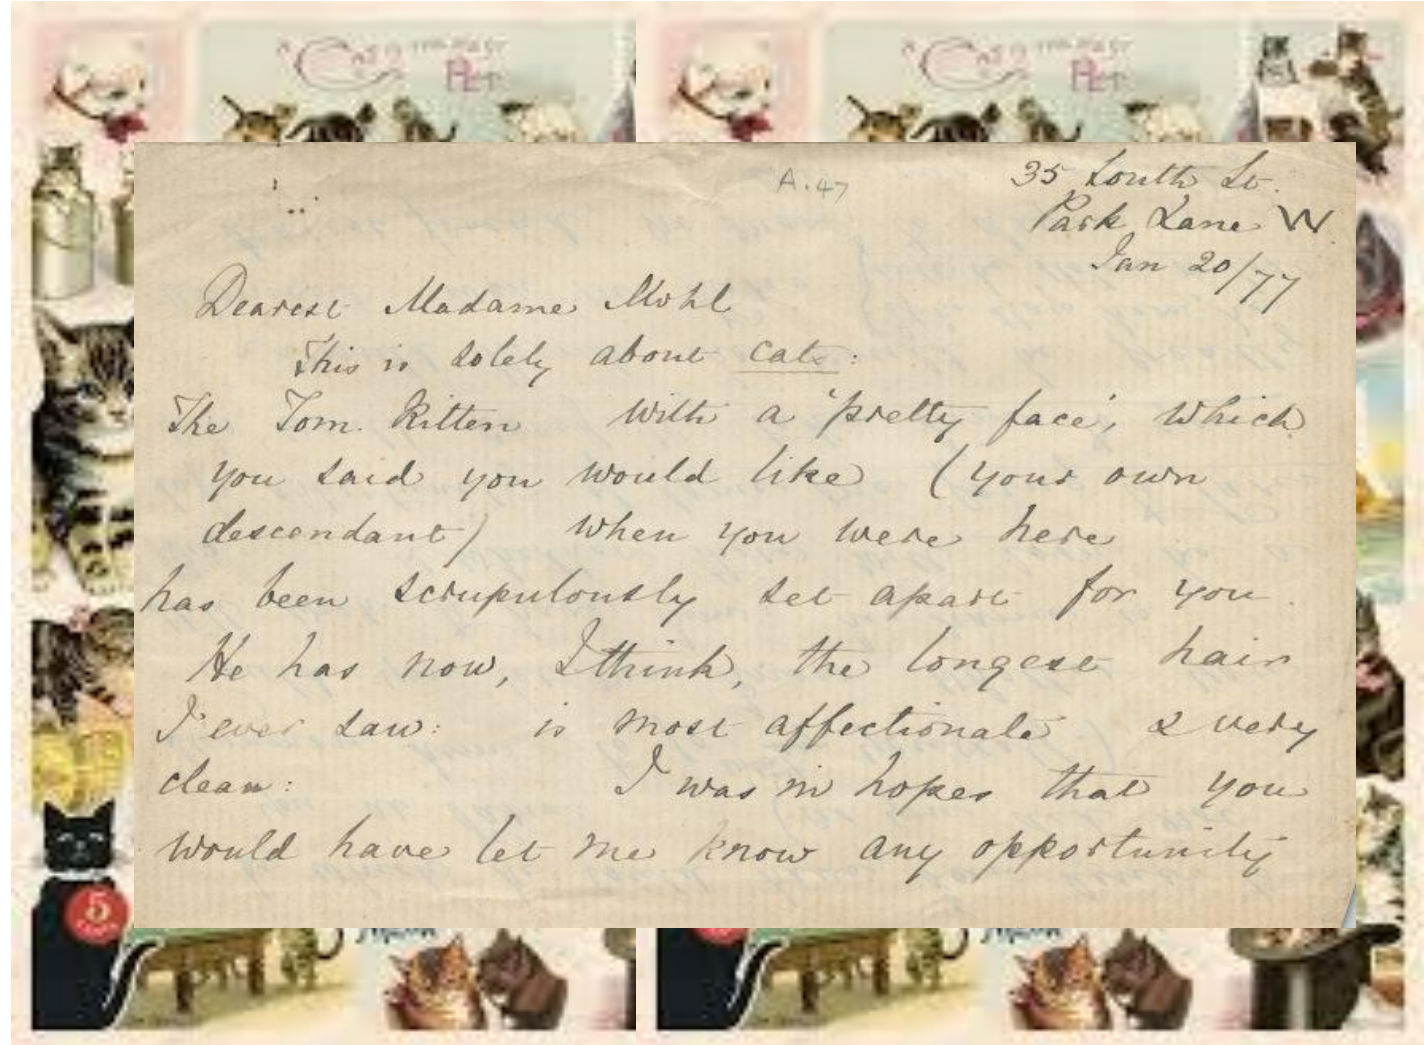 A.47
35 South St.
Park Lane W.
Jan 20/77
Dearest Madame Mohl
This is solely about cats:
The Tom Kitten with a 'pretty face', which
you said you would like (your own
descendant) when you were here
has been scrupulously set apart for you.
He has now, I think, the longest hair
I ever saw: is most affectionate & very
clean: I was in hopes that you
would have let me know any opportunity
5